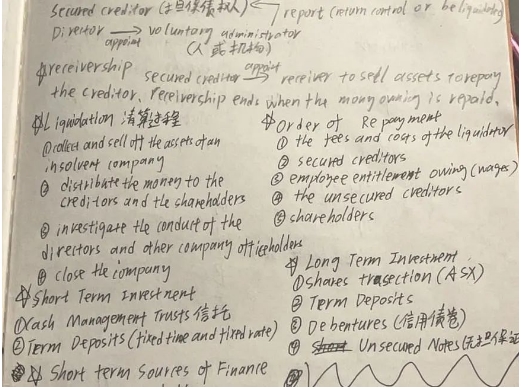 secured creditor (担保债权人) ← report (return control or be liquidating
Director → appoint voluntary administrator
(人或机构)
☆receivership secured creditor → appoint receiver to sell assets to repay
the creditor. receivership ends when the mony owning is repaid.
☆Liquidation 清算过程
①collect and sell off the assets of an
insolvent company
② distribute the money to the
creditors and the shareholders
③ investigate the conduct of the
directors and other company officeholders
④ close the company
☆Short Term Investnent
①Cash Management Trusts 信托
②Term Deposits (fixed time and fixed rate)
☆ Short term Sources of Finance
☆Order of Repayment
① the fees and costs of the liquidator
② secured creditors
③ employee entitlement owing (wages)
④ the unsecured creditors
⑤ shareholders
☆ Long Term Investnent
①shares trasection (ASX)
② Term Deposits
③ Debentures (信用债卷)
④ Unsecured Notes (无担保证